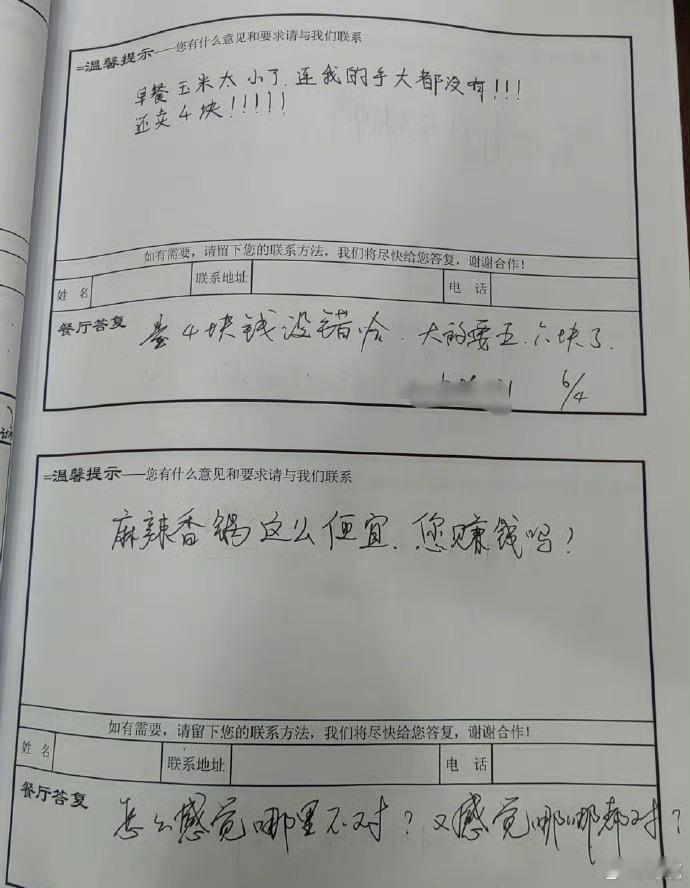 =温馨提示——您有什么意见和要求请与我们联系
早餐 玉米太小了.连我的手大都没有!!!
还卖4块!!!!!
如有需要，请留下您的联系方法，我们将尽快给您答复，谢谢合作!
姓 名 联系地址 电 话
餐厅答复 4块钱没错哈.大的要五.六块了.
6/4
=温馨提示——您有什么意见和要求请与我们联系
麻辣香锅这么便宜.您赚钱吗?
如有需要，请留下您的联系方法，我们将尽快给您答复，谢谢合作!
姓 名 联系地址 电 话
餐厅答复 怎么感觉哪里不对?又感觉哪哪都对?